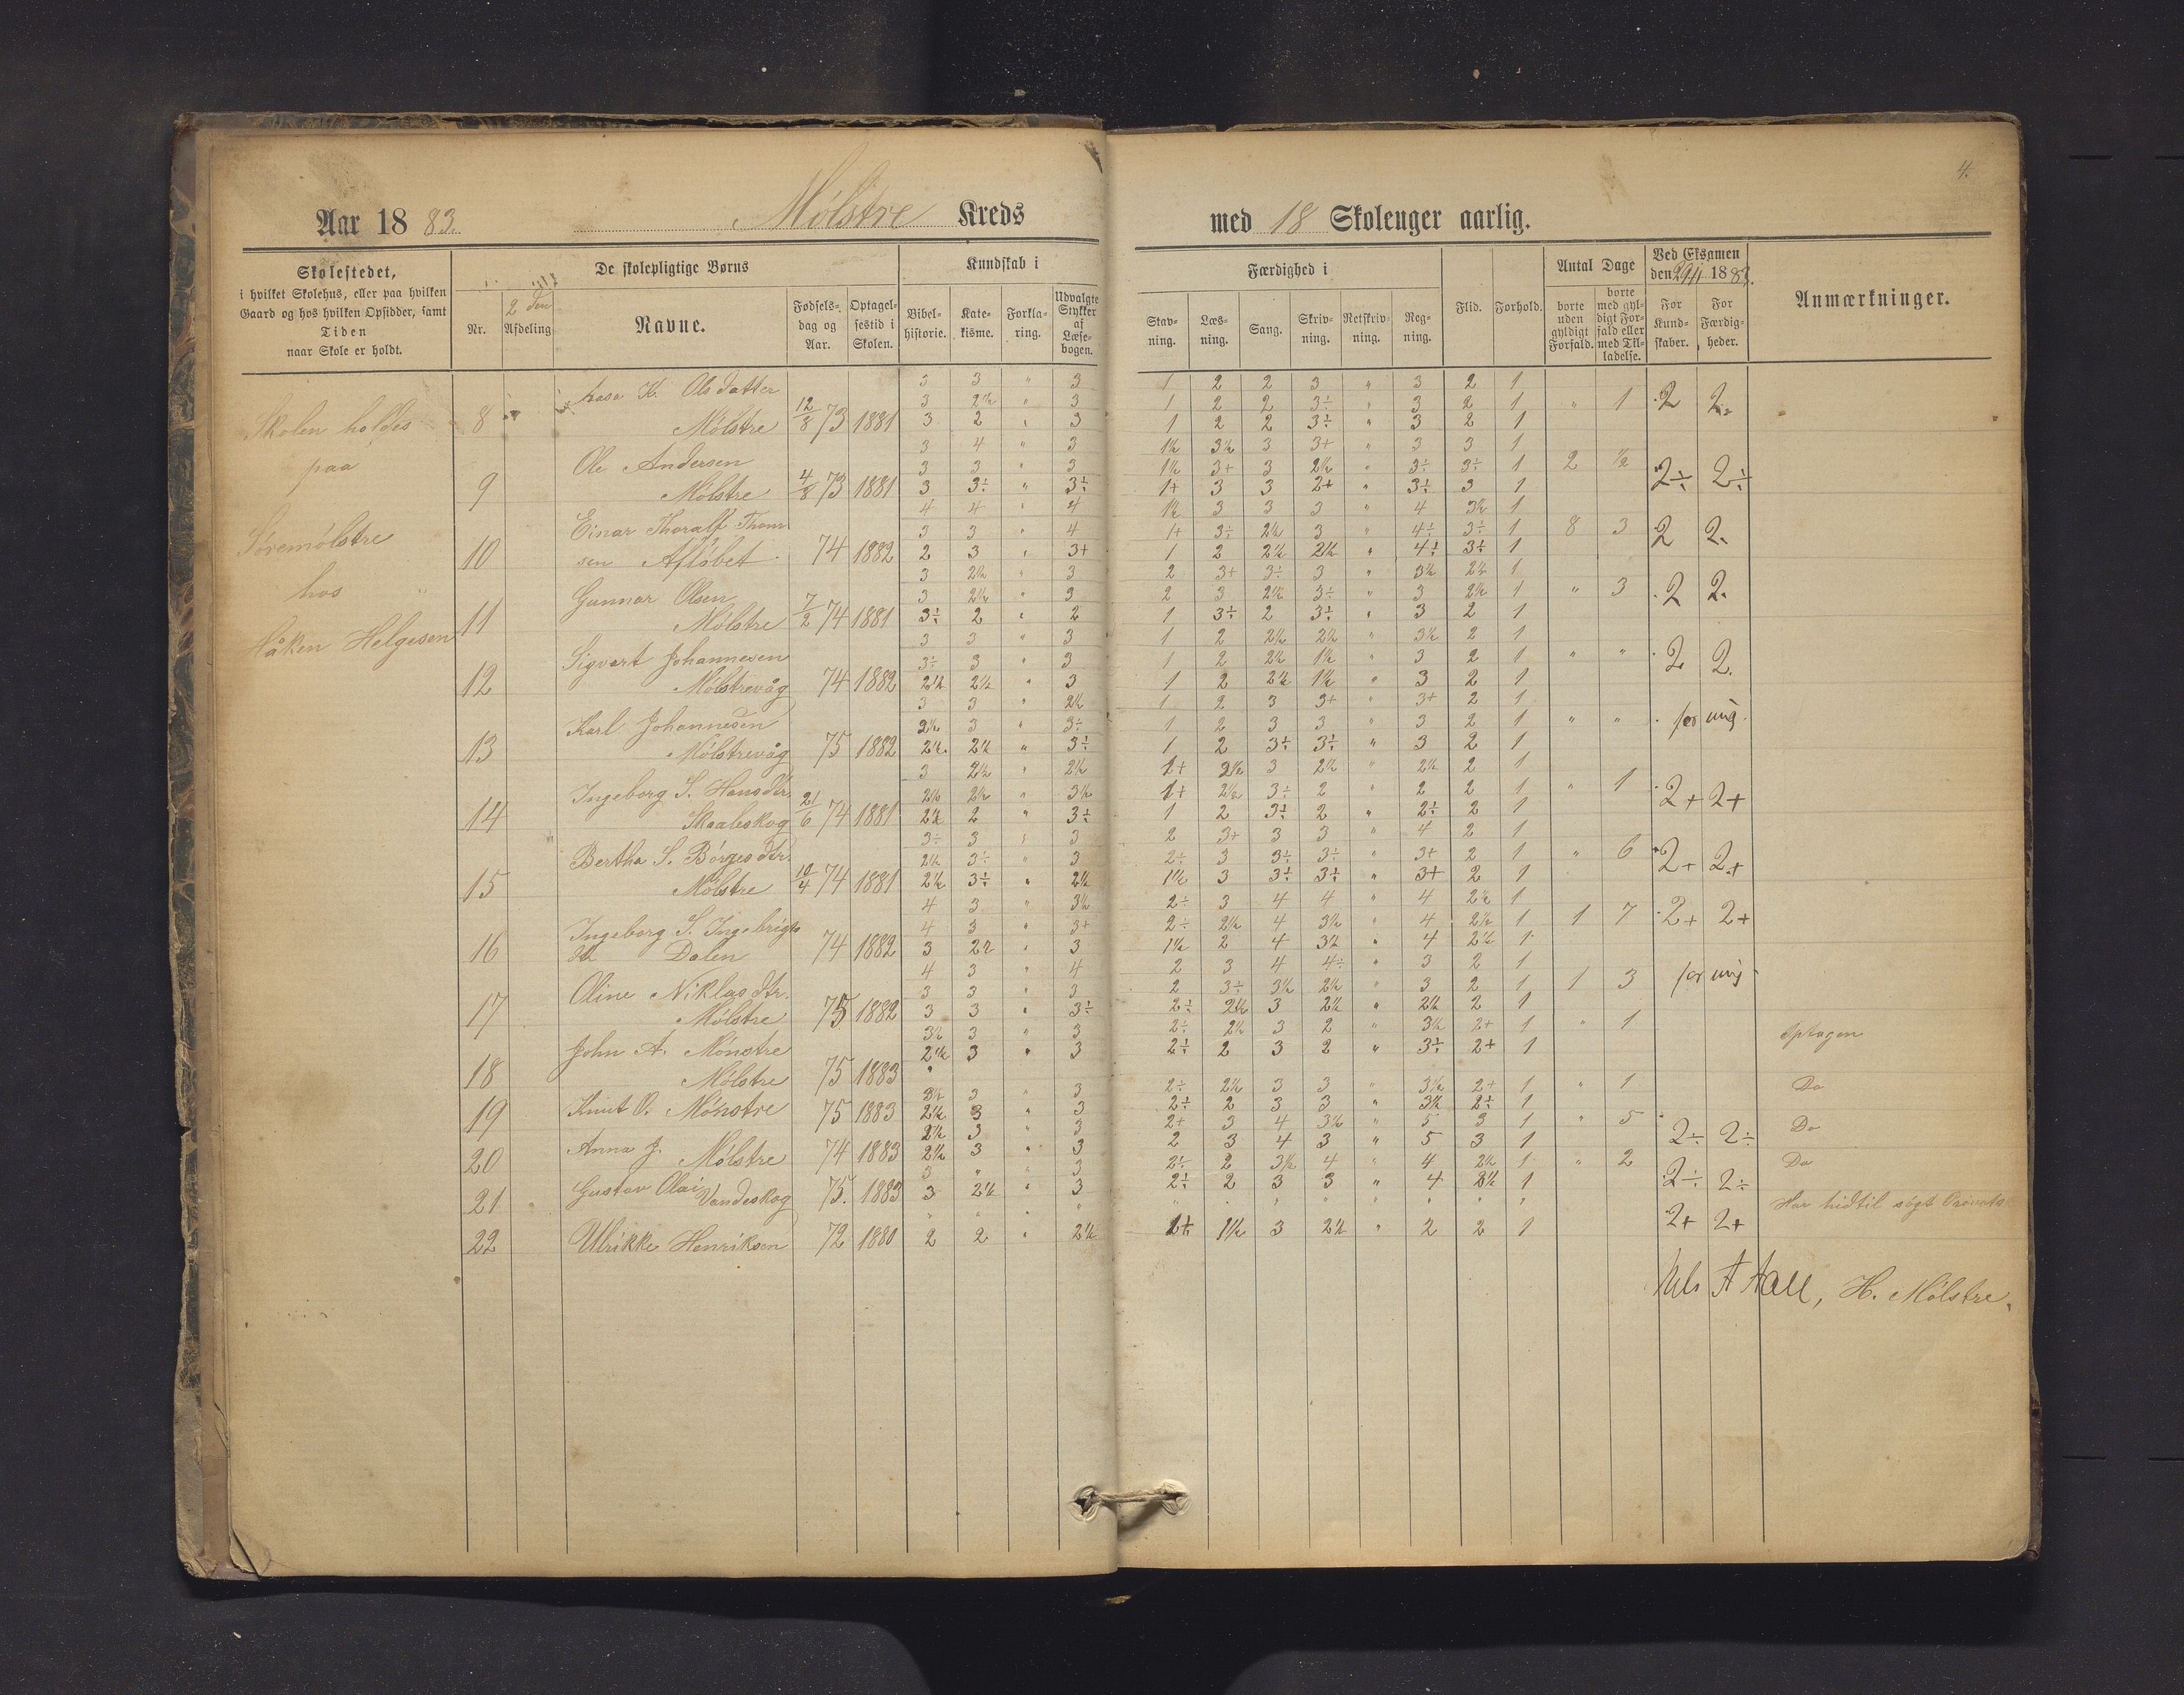 4.
Aar 1883. Mölstre Kreds med 18 Skoleuger aarlig.
Skolestedet,
i hvilket Skolehus, eller paa hvilken
Gaard og hos hvilken Opsidder, samt
Tiden
naar Skole er holdt.
De skolepligtige Børns
Nr.
2 den
Afdeling
Navne.
Fødsels-
dag og
Aar.
Optagel-
sestid i
Skolen.
Kundskab i
Bibel-
historie.
Kate-
kisme.
Forkla-
ring.
Udvalgte
Stykker
af
Læse-
bogen.
Færdighed i
Stav-
ning.
Læs-
ning.
Sang.
Skriv-
ning.
Retskriv-
ning.
Reg-
ning.
Flid.
Forhold.
Antal Dage
borte
uden
gyldigt
Forfald.
borte
med gyl-
digt For-
fald eller
med Til-
ladelse.
Ved Eksamen
den 29/11 1883.
For
Kund-
skaber.
For
Færdig-
heder.
Anmærkninger.
Skolen holdes
paa
Söremölstre
hos
Håken Helgesen
3 3 " 3 1 2 2 3 " 3 2 1
Aasa K. Olsdatter 3 2½ " 3 1 2 2 3÷ " 3 2 1 " 1 2 2.
8 Mölstre 12/8 73 1881 3 2 " 3 1 2 2 3÷ " 3 2 1
3 4 " 3 1½ 3½ 3 3+ " 3 3 1
Ole Andersen 3 3 " 3 1½ 3+ 3 2½ " 3÷ 3÷ 1 2 ½ 2÷ 2÷
9 Mölstre 4/8 73 1881 3 3÷ " 3÷ 1+ 3 3 2+ " 3÷ 3 1
4 4 " 4 1½ 3 3 3 " 4 3½ 1
Einar Thoralf Thom 3 3 " 4 1+ 3÷ 2½ 3 " 4÷ 3÷ 1 8 3 2 2.
10 sen Aflöbet 74 1882 2 3 " 3+ 1 2 2½ 2½ " 4÷ 3÷ 1
3 2½ " 3 2 3+ 3÷ 3 " 3½ 2½ 1
Gunnar Olsen 3 2½ " 3 2 3 2½ 3÷ " 3 2½ 1 " 3 2 2.
11 Mölstre 7/2 74 1881 3÷ 2 " 2 1 3÷ 2 3÷ " 3 2 1
3 3 " 3 1 2 2½ 2½ " 3½ 2 1
Sigvart Johannesen 3÷ 3 " 3 1 2 2½ 1½ " 3 2 1 " " 2 2.
12 Mölstrevåg 74 1882 2½ 2½ " 3 1 2 2½ 1½ " 3 2 1
3 3 " 2½ 1 2 3 3+ " 3+ 2 1
Karl Johannesen 3½ 3 " 3÷ 1 2 3 3 " 3 2 1 " " for ung.
13 Mölstrevåg 75 1882 2½ 2½ " 3÷ 1 2 3÷ 3÷ " 3 2 1
3 2½ " 2½ 1+ 3½ 3 2½ " 2½ 2 1
Ingeborg S. Hansdtr. 2½ 2½ " 3½ 1+ 2½ 3÷ 2 " 2 2 1 " 1 2+ 2+
14 Skaaleskog 21/6 74 1881 2½ 2 " 3÷ 1 2 3÷ 2 " 2÷ 2 1
3÷ 3 " 3 2 3+ 3 3 " 4 2 1
Bertha S. Börgesdtr. 2½ 3÷ " 3 2÷ 3 3÷ 3÷ " 3+ 2 1 " 6 2+ 2+
15 Mölstre 10/4 74 1881 2½ 3÷ " 2½ 1½ 3 3÷ 3÷ " 3+ 2 1
4 3 " 3½ 2÷ 3 4 4 " 4 2½ 1
Ingeborg S. Ingebrigts 4 3 " 3+ 2÷ 2½ 4 3½ " 4 2½ 1 1 7 2+ 2+
16 Dalen 74 1882 3 2½ " 3 1½ 2 4 3½ " 4 2½ 1
4 3 " 4 2 3 4 4÷ " 3 2 1
Oline Niklasdtr. 3 3 " 3 2 3÷ 3½ 2½ " 3 2 1 1 3 for ung
17 Mölstre 75 1882 3 3 " 3÷ 2÷ 2½ 3 2½ " 2½ 2 1
3½ 3 " 3 2÷ 2½ 3 2 " 3½ 2+ 1 " 1 Optagen
John A. Mönstre 2½ 3 " 3 2÷ 2 3 2 " 3÷ 2+ 1
18 Mölstre 75 1883
3½ 3 " 3 2÷ 2½ 3 3 " 3½ 2+ 1 " 1 Do
19 Knut O. Mönstre 75 1883 2½ 3 " 3 2÷ 2 3 3 " 3½ 2÷ 1
2½ 3 " 3 2+ 3 4 3½ " 5 3 1 " 5 2÷ 2÷ Do
20 Anna J. Mölstre 74 1883 2½ 3 " 3 2 3 4 3 " 5 3 1
3 " " 3 2÷ 2 3½ 4 " 4 2½ 1 " 2 2÷ 2÷ Do
21 Gustav Olai Vandeskog 75. 1883 3 2½ " 3 2÷ 2 3 3 " 4 3½ 1
2+ 2+ Har hidtil sögt
22 Ulrikke Henriksen 72 1880 2 2 " 2½ 1+ 1½ 3 2½ " 2 2 1
H. Mölstre.